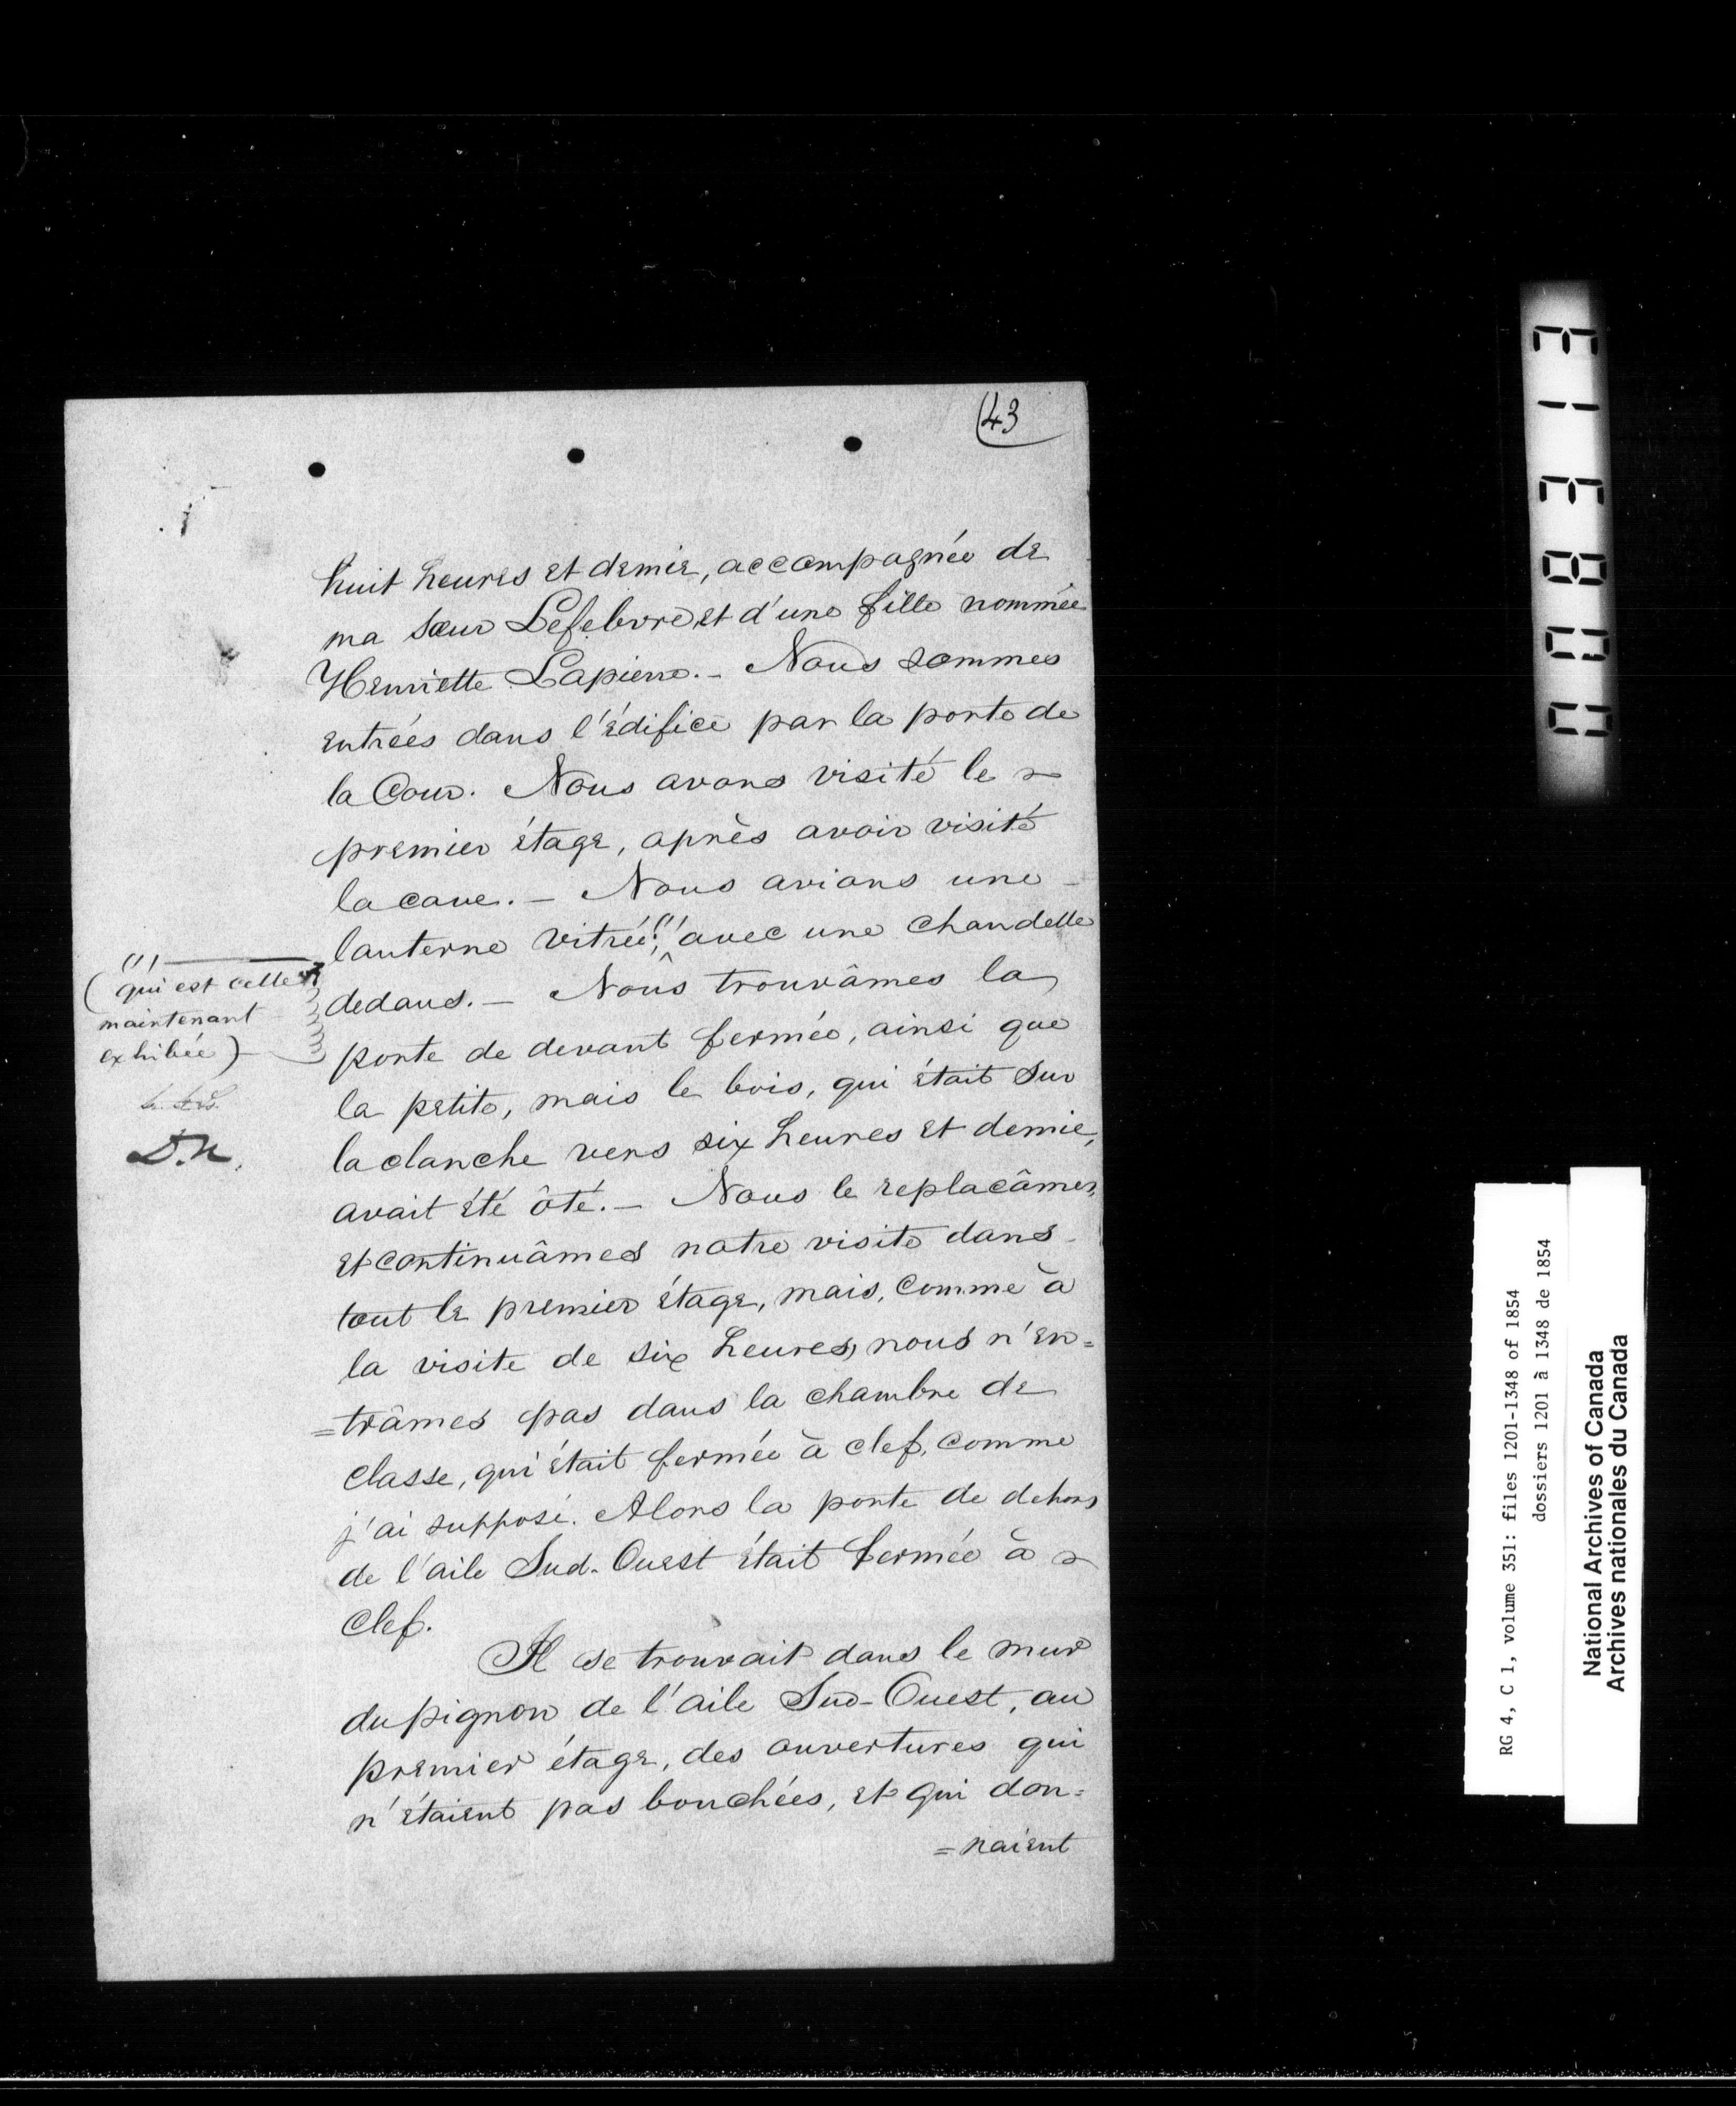 43
huit heures et demie, accompagnée de
ma sœur Lefebvre, et d'une fille nommée
Henriette Lapierre. - Nous sommes
entrées dans l'édifice par la porte de
la Cour. Nous avons visité le
premier étage, après avoir visité
la cave. - Nous avions une -
lanterne vitrée; (1) avec une chandelle
dedans. - Nous trouvâmes la
porte de devant fermée, ainsi que
la petite, mais le bois, qui était sur
la clanche vers six heures et demie,
avait été ôté. - Nous le replacâmes,
et continuâmes notre visite dans
tout le premier étage, mais, comme à
la visite de six heures, nous n'en=
=trâmes pas dans la chambre de
classe, qui était fermée à clef, comme
j'ai supposé. Alors la porte de dehors
de l'aile Sud-Ouest était fermée à
clef.
Il se trouvait dans le mur
du pignon de l'aile Sud-Ouest, au
premier étage, des ouvertures qui
n'étaient pas bouchées, et qui don=
=naient
(1)
(qui est celle
maintenant
exhibée)
D.N.
E1E800
RG 4, C 1, volume 351: files 1201-1348 of 1854
dossiers 1201 à 1348 de 1854
National Archives of Canada
Archives nationales du Canada